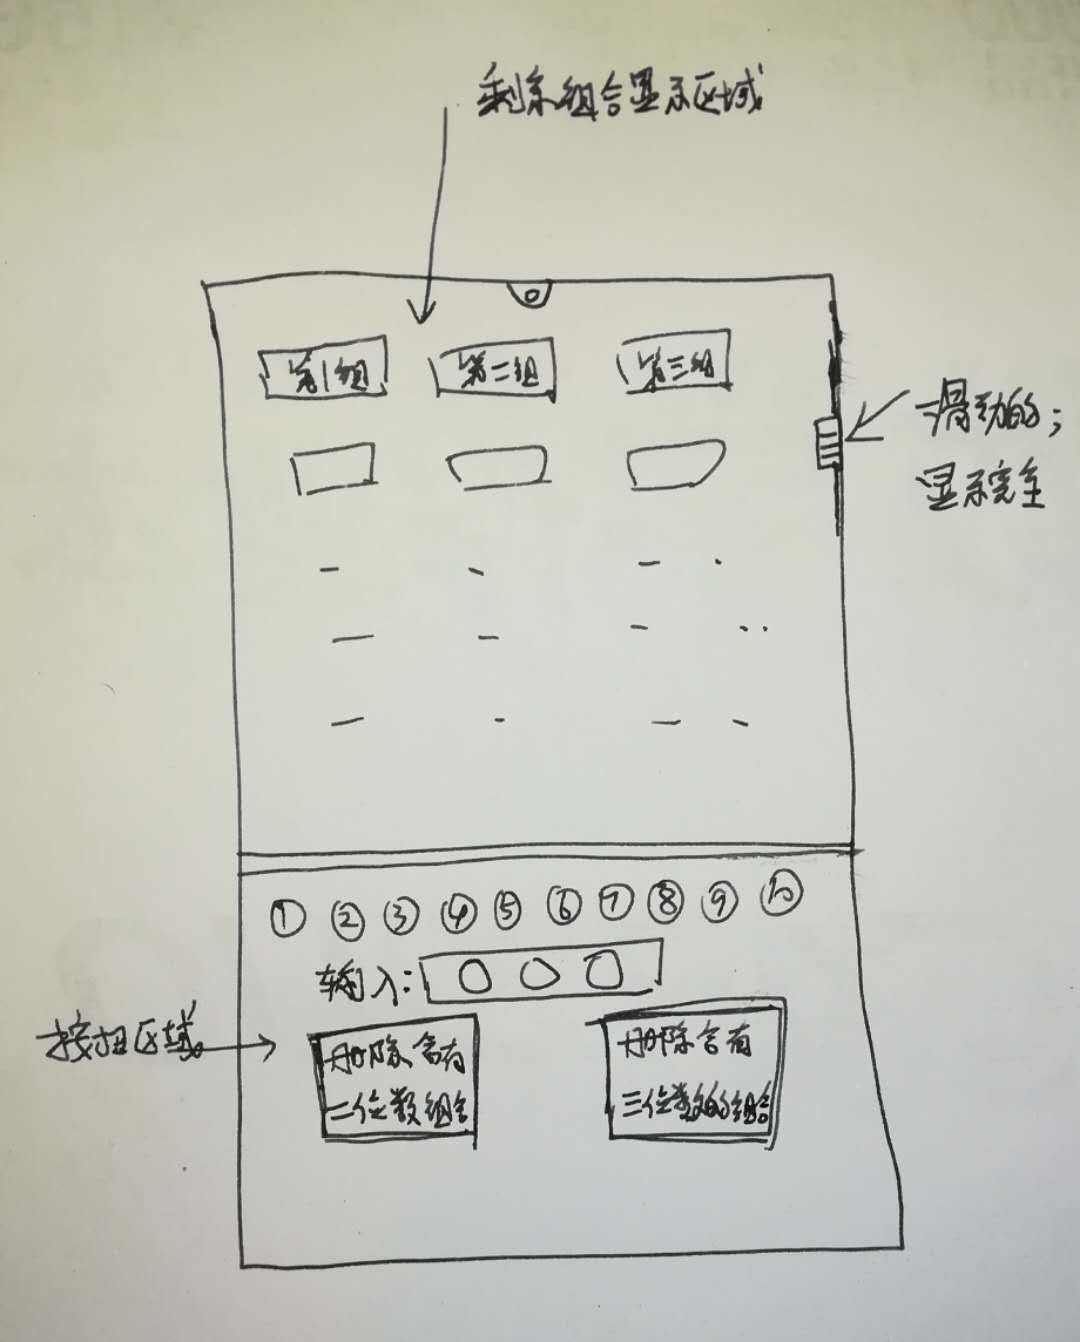 剩余组合显示区域
第1组 第二组 第三组
滑动的;
显示完全
① ② ③ ④ ⑤ ⑥ ⑦ ⑧ ⑨ ⑩
输入:
按扭区域
删除含有
二位数组合
删除含有
三位数的组合